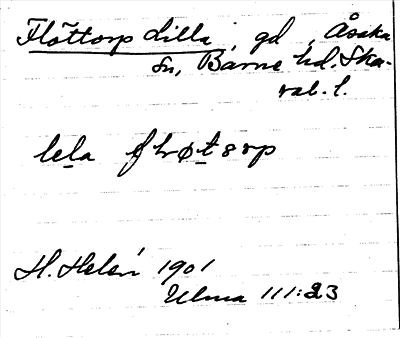 Flöttorp Lilla, gd, Åsaka
sn, Barne hd. Ska-
rab. l.
lela
H. Helén 1901
Ulma 111:23